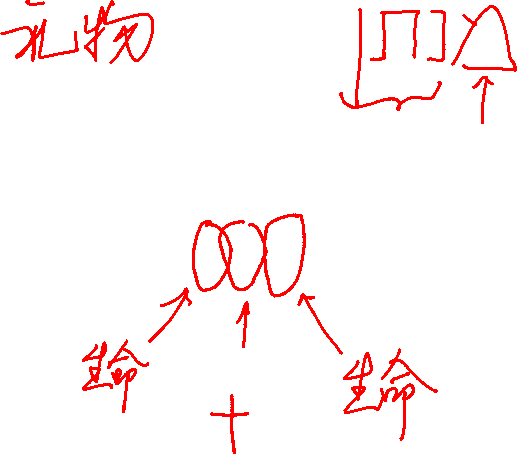 礼物
生命 生命